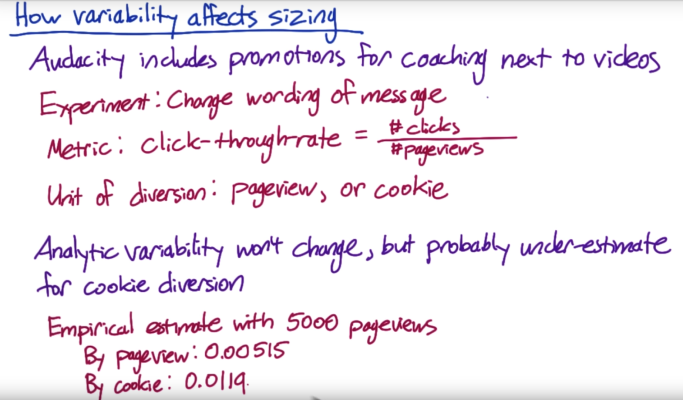 How variability affects sizing
Audacity includes promotions for coaching next to videos
Experiment: Change wording of message
Metric: click-through-rate = #clicks
#pageviews
Unit of diversion: pageview, or cookie
Analytic variability won't change, but probably under-estimate
for cookie diversion
Empirical estimate with 5000 pageviews
By pageview: 0.00515
By cookie: 0.0119